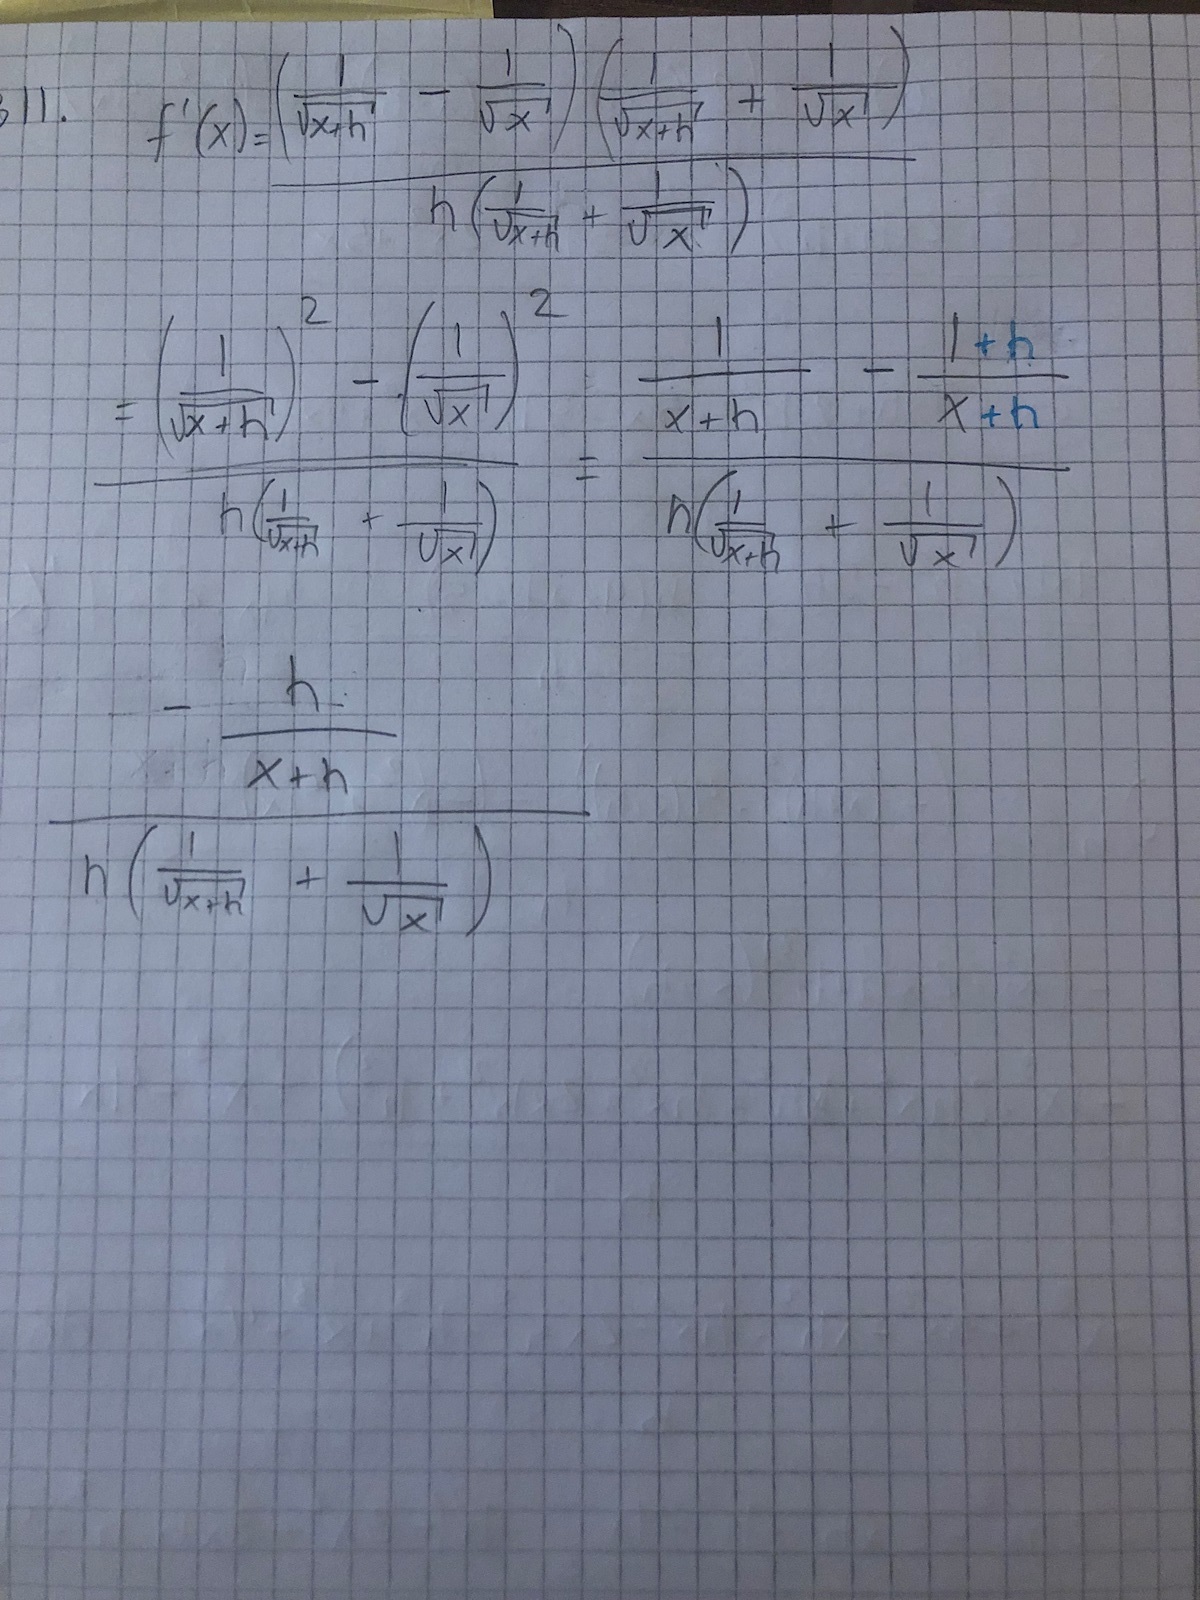 311. f'(x) = ((1/√(x+h) - 1/√x)(1/√(x+h) + 1/√x)) / (h(1/√(x+h) + 1/√x))
= ((1/√(x+h))² - (1/√x)²) / (h(1/√(x+h) + 1/√x)) = (1/(x+h) - (1+h)/(x+h)) / (h(1/√(x+h) + 1/√x))
(- h/(x+h)) / (h(1/√(x+h) + 1/√x))